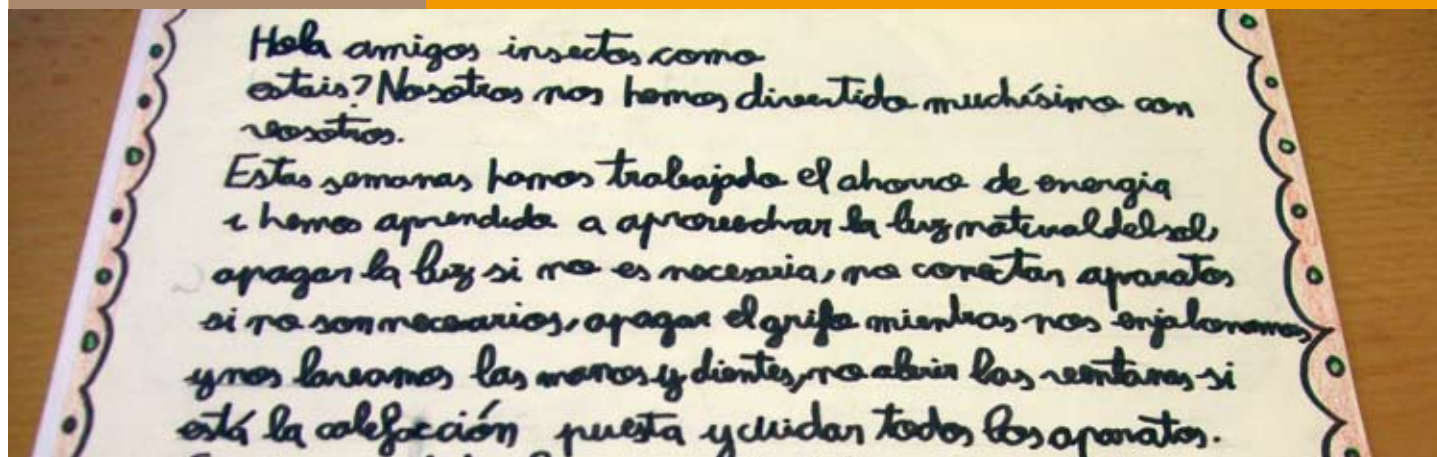 Hola amigos insectos como
estais? Nosotros nos hemos divertido muchísimo con
vosotros.
Estas semanas hemos trabajado el ahorro de energia
i hemos aprendido a aprovechar la luz natural del sol,
apagar la luz si no es necesaria, no conectar aparatos
si no son necesarios, apagar el grifo mientras nos enjabonamos
y nos lavamos las manos y dientes, no abrir las ventanas si
está la calefacción puesta y cuidar todos los aparatos.